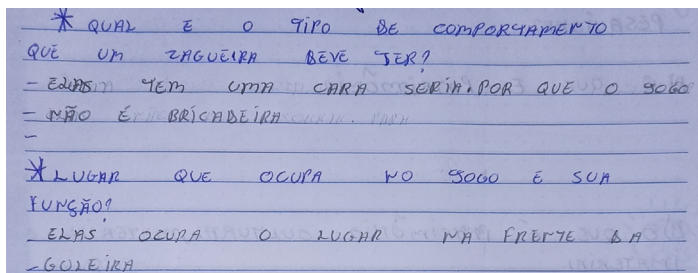 * QUAL E O TIPO DE COMPORTAMENTO
QUE UM ZAGUEIRA DEVE TER?
- ELAS TEM UMA CARA SERIA. POR QUE O JOGO
- NÃO É BRICADEIRA
-
* LUGAR QUE OCUPA NO JOGO E SUA
FUNÇÃO?
- ELAS OCUPA O LUGAR NA FRENTE DA
- GOLEIRA